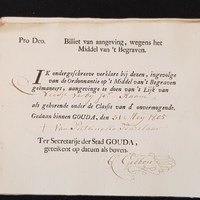 Pro Deo. Billiet van aangeving, wegens het
Middel van 't Begraven.
IK ondergeschreeve verklare bij deezen, ingevolge
van de Ordonnantie op 't Middel van 't Begraven
geëmaneert, aangevinge te doen van 't Lijk van
als gehorende onder de Classis van d'onvermogende.
Gedaan binnen GOUDA, den 31 Mey 1805
Ter Secretarije der Stad GOUDA,
geteikent op datum als boven.